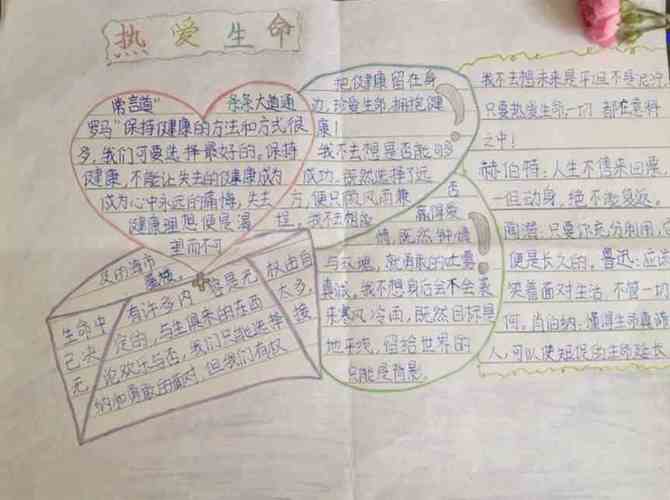 热爱生命
常言道"条条大道通
罗马"保持健康的方法和方式很
多,我们可要选择最好的。保持
健康,不能让失去的健康成为
成为心中永远的痛悔,失去
健康理想便是渴
望而不可
及的海市
蜃楼。
把健康留在身
边,珍爱生命,拥抱健
康!
我不去想是否能够
成功,既然选择了远
方,便只顾风雨兼
程,我不去想能否
赢得爱
情,既然钟情
与玫瑰,就勇敢的吐露
真诚。我不想身后会不会袭
来寒风冷雨,既然目标是
地平线,留给世界的
只能是背影。
生命中有许多内容是无
法由自己决定的,与生俱来的东西太多,
无论欢乐与否,我们只能选择接
纳和勇敢的面对,但我们有权
我不去想未来是平坦还是泥泞
只要热爱生命一切,都在意料
之中!
赫伯特:人生不售来回票,
一但动身,绝不能复返。
陶潜:只要你充分利用,它
便是长久的。鲁迅:应该
笑着面对生活,不管一切
何。肖伯纳:懂得生命真谛
人,可以使短促的生命延长